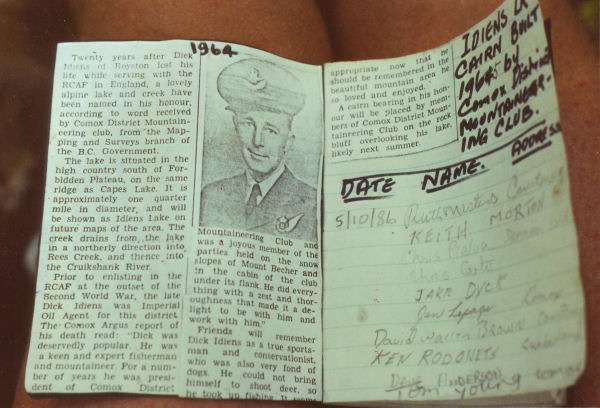 1964
Twenty years after Dick
Idiens of Royston lost his
life while serving with the
RCAF in England, a lovely
alpine lake and creek have
been named in his honour,
according to word received
by Comox District Mountain-
eering club, from the Map-
ping and Surveys branch of
the B.C. Government.
The lake is situated in the
high country south of For-
bidden Plateau, on the same
ridge as Capes Lake. It is
approximately one quarter
mile in diameter, and will
be shown as Idiens Lake on
future maps of the area. The
creek drains from the lake
in a northerly direction into
Rees Creek, and thence into
the Cruikshank River.
Prior to enlisting in the
RCAF at the outset of the
Second World War, the late
Dick Idiens was Imperial
Oil Agent for this district.
The Comox Argus report of
his death read: "Dick was
deservedly popular. He was
a keen and expert fisherman
and mountaineer. For a num-
ber of years he was presi-
dent of Comox District
Mountaineering Club and
was a joyous member of the
parties held on the snow
slopes of Mount Becher and
in the cabin of the club
under its flank. He did every-
thing with a zest and thor-
oughness that made it a de-
light to be with him and
work with him."
Friends will remember
Dick Idiens as a true sports-
man and conservationist,
who was also very fond of
dogs. He could not bring
himself to shoot deer, so
he took up fishing. It seems
appropriate now that he
should be remembered in the
beautiful mountain area he
so loved and enjoyed."
A cairn bearing in his hon-
our will be placed by mem-
bers of Comox District Moun-
taineering Club on the rock
bluff overlooking his lake,
likely next summer.
IDIENS LK
CAIRN BUILT
1965 by
Comox District
MOUNTAINEER-
ING CLUB.
DATE NAME. ADDRESS
5/10/86 Ruth Masters
KEITH MORTON
Chris
Carter
JAKE DYCK
Ken
David Warren BROWN
KEN RODONETS
Dave ANDERSON
Tom Young